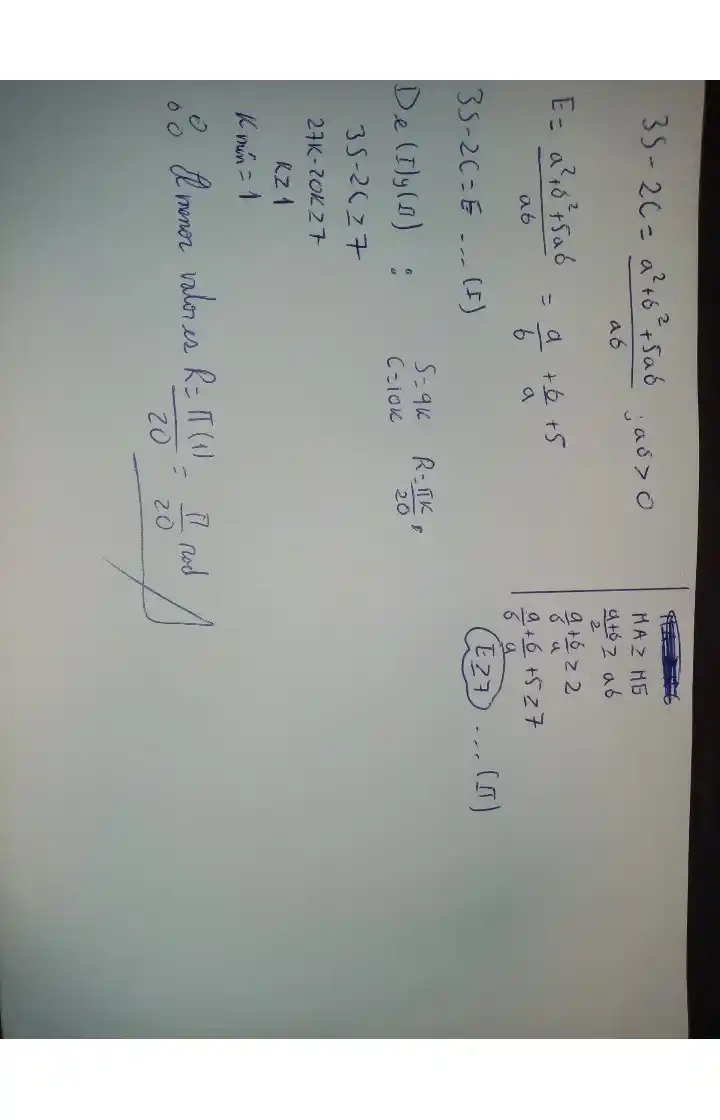 3S - 2C = a² + b² + 5ab / ab ; ab > 0
E = a² + b² + 5ab / ab = a/b + b/a + 5
3S - 2C = E ... (I)
De (I) y (II) :
S = 9K
C = 10K
R = πK/20 ,
3S - 2C ≥ 7
27K - 20K ≥ 7
K ≥ 1
Kmín = 1
∴ El menor valor es R = π(1)/20 = π/20 rad
MA ≥ MG
a+b/2 ≥ ab
a/b + b/a ≥ 2
a/b + b/a + 5 ≥ 7
E ≥ 7 ... (II)